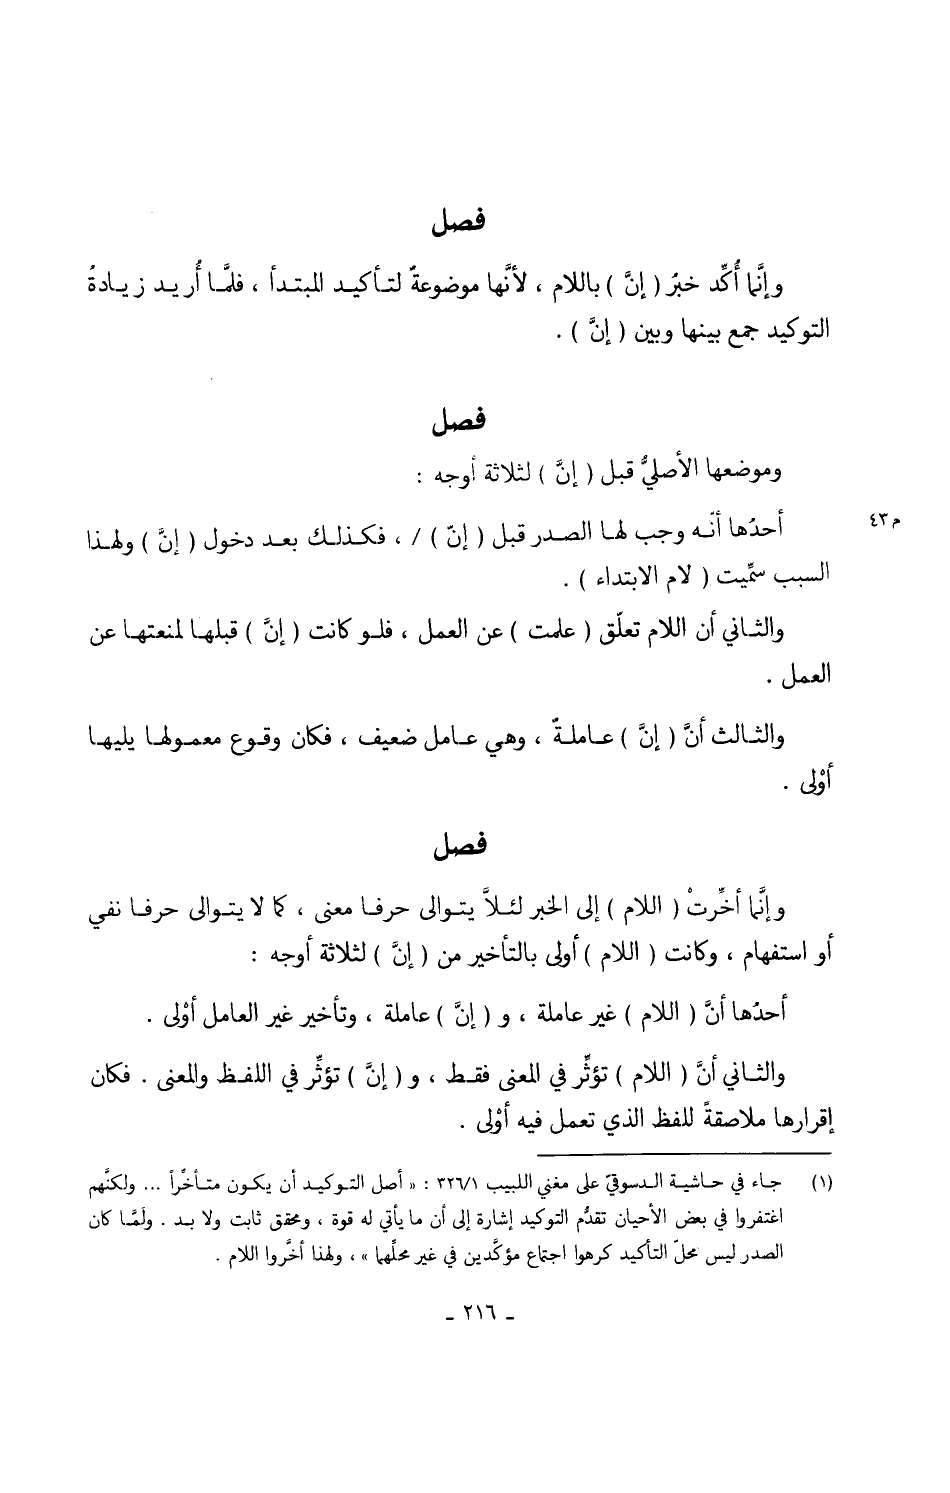 فصل
وإنَّما أُكِّد خبرُ ( إنَّ ) باللام ، لأنَّها موضوعةٌ لتأكيد المبتدأ ، فلمَّا أُريد زيادةُ
التوكيد جمع بينها وبين ( إنَّ ) .
فصل
وموضعها الأصليُّ قبل ( إنَّ ) لثلاثة أوجه :
أحدُها أنّه وجب لها الصدر قبل ( إنّ ) / ، فكذلك بعد دخول ( إنَّ ) ولهذا
م ٤٣
السبب سمِّيت ( لام الابتداء ) .
والثاني أن اللام تعلّق ( علمت ) عن العمل ، فلو كانت ( إنَّ ) قبلها لمنعتها عن
العمل .
والثالث أنَّ ( إنَّ ) عاملةٌ ، وهي عامل ضعيف ، فكان وقوع معمولها يليها
أوْلى .
فصل
وإنَّما أخِّرتْ ( اللام ) إلى الخبر لئلاَّ يتوالى حرفا معنى ، كما لا يتوالى حرفا نفي
أو استفهام ، وكانت ( اللام ) أولى بالتأخير من ( إنَّ ) لثلاثة أوجه :
أحدُها أنَّ ( اللام ) غير عاملة ، و ( إنَّ ) عاملة ، وتأخير غير العامل أوْلى .
والثاني أنَّ ( اللام ) تؤثِّر في المعنى فقط ، و ( إنَّ ) تؤثِّر في اللفظ والمعنى . فكان
إقرارها ملاصقةً للفظ الذي تعمل فيه أوْلى .
(١) جاء في حاشية الدسوقيّ على مغني اللبيب ٣٢٦/١ : « أصل التوكيد أن يكون متأخِّراً ... ولكنَّهم
اغتفروا في بعض الأحيان تقدُّم التوكيد إشارة إلى أن ما يأتي له قوة ، ومحقق ثابت ولا بد . ولَمَّا كان
الصدر ليس محلّ التأكيد كرهوا اجتماع مؤكَّدين في غير محلِّهما » ، ولهذا أخَّروا اللام .
ـ ٢١٦ ـ